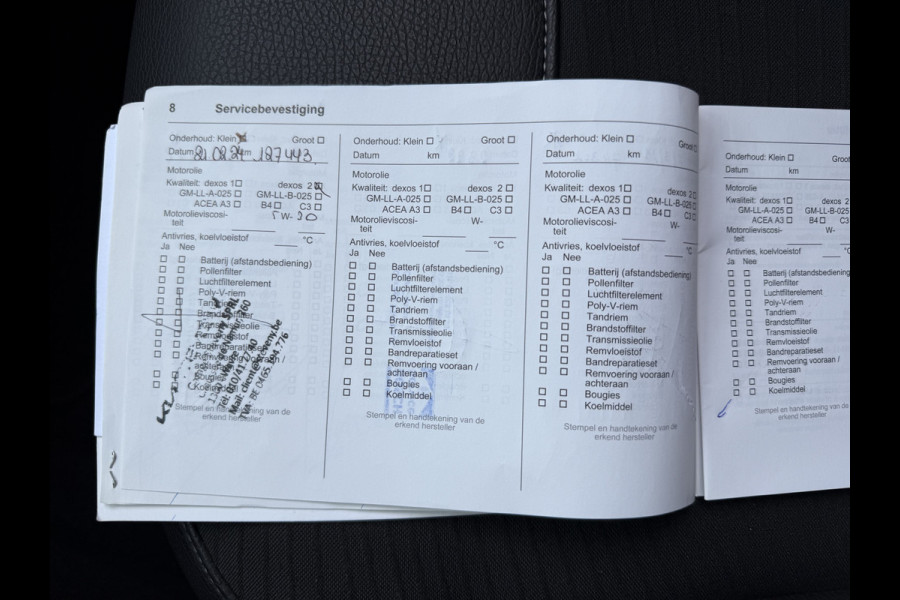 8 Servicebevestiging
Onderhoud: Klein Groot
Datum 21.02.24 km 127443
Motorolie
Kwaliteit: dexos 1 dexos 2
GM-LL-A-025 GM-LL-B-025
ACEA A3 B4 C3
Motorolieviscosi-
teit 5 W- 30
Antivries, koelvloeistof °C
Ja Nee
Batterij (afstandsbediening)
Pollenfilter
Luchtfilterelement
Poly-V-riem
Tandriem
Brandstoffilter
Transmissieolie
Remvloeistof
Bandreparatieset
Remvoering vooraan /
achteraan
Bougies
Koelmiddel
Stempel en handtekening van de
erkend hersteller
Onderhoud: Klein Groot
Datum km
Motorolie
Kwaliteit: dexos 1 dexos 2
GM-LL-A-025 GM-LL-B-025
ACEA A3 B4 C3
Motorolieviscosi- W-
teit
Antivries, koelvloeistof °C
Ja Nee
Batterij (afstandsbediening)
Pollenfilter
Luchtfilterelement
Poly-V-riem
Tandriem
Brandstoffilter
Transmissieolie
Remvloeistof
Bandreparatieset
Remvoering vooraan /
achteraan
Bougies
Koelmiddel
Stempel en handtekening van de
erkend hersteller
Onderhoud: Klein Groot
Datum km
Motorolie
Kwaliteit: dexos 1 dexos 2
GM-LL-A-025 GM-LL-B-025
ACEA A3 B4 C3
Motorolieviscosi- W-
teit
Antivries, koelvloeistof °C
Ja Nee
Batterij (afstandsbediening)
Pollenfilter
Luchtfilterelement
Poly-V-riem
Tandriem
Brandstoffilter
Transmissieolie
Remvloeistof
Bandreparatieset
Remvoering vooraan /
achteraan
Bougies
Koelmiddel
Stempel en handtekening van de
erkend hersteller
Onderhoud: Klein Groot
Datum km
Motorolie
Kwaliteit: dexos 1 dexos 2
GM-LL-A-025 GM-LL-B-025
ACEA A3 B4 C3
Motorolieviscosi- W-
teit
Antivries, koelvloeistof °C
Ja Nee
Batterij (afstandsbediening)
Pollenfilter
Luchtfilterelement
Poly-V-riem
Tandriem
Brandstoffilter
Transmissieolie
Remvloeistof
Bandreparatieset
Remvoering vooraan /
achteraan
Bougies
Koelmiddel
Stempel en handtekening van de
erkend hersteller